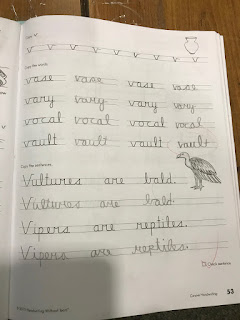 Copy "v".
v v v v v v v v v
Copy the words.
vase vase vase vase
vary vary vary vary
vocal vocal vocal vocal
vault vault vault vault
Copy the sentences.
Vultures are bald.
Vultures are bald.
Vipers are reptiles.
Vipers are reptiles.
Check sentence
Cursive Handwriting
53